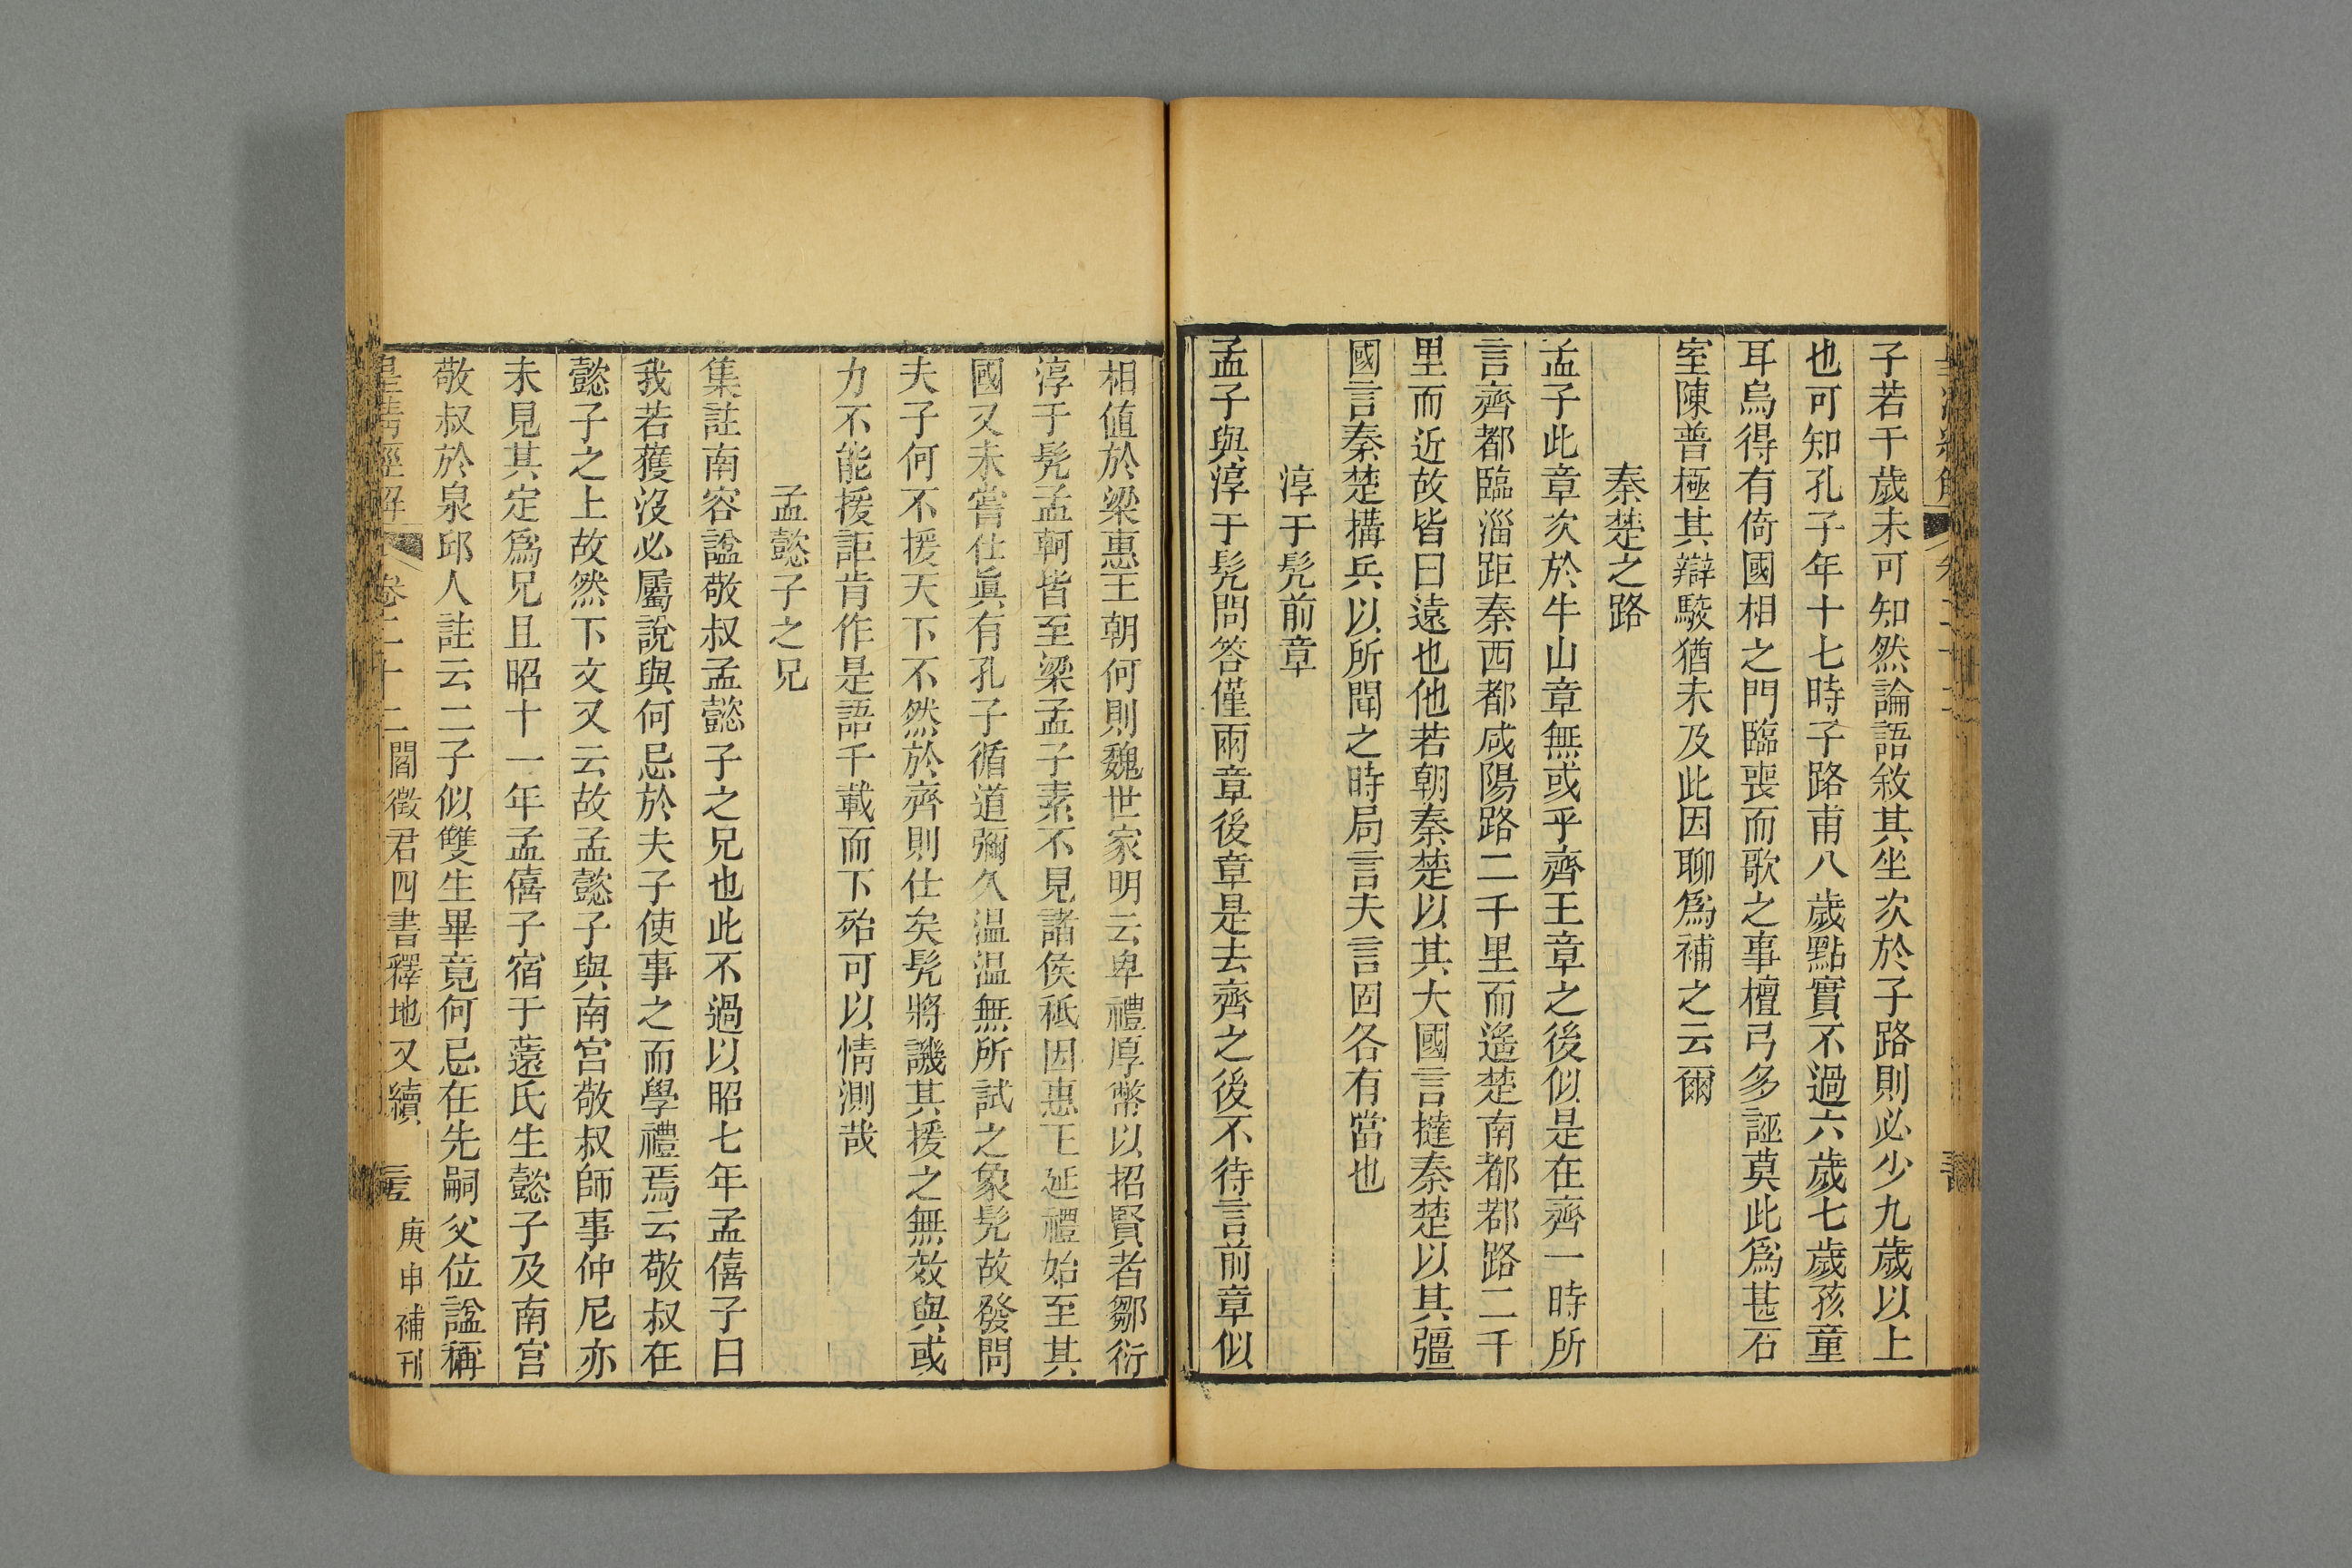 子若干歲未可知然論語敘其坐次於子路則必少九歲以上
也可知孔子年十七時子路甫八歲點實不過六歲七歲孩童
耳烏得有倚國相之門臨喪而歌之事檀弓多誣莫此爲甚石
室陳普極其辯駮猶未及此因聊爲補之云爾
秦楚之路
孟子此章次於牛山章無或乎齊王章之後似是在齊一時所
言齊都臨淄距秦西都咸陽路二千里而遙楚南都郡路二千
里而近故皆曰遠也他若朝秦楚以其大國言撻秦楚以其彊
國言秦楚搆兵以所聞之時局言夫言固各有當也
淳于髠前章
孟子與淳于髠問答僅兩章後章是去齊之後不待言前章似
相値於梁惠王朝何則魏世家明云卑禮厚幣以招賢者鄒衍
淳于髠孟軻皆至梁孟子素不見諸侯秪因惠王延禮始至其
國又未嘗仕眞有孔子循道彌久温温無所試之象髠故發問
夫子何不援天下不然於齊則仕矣髠將譏其援之無效與或
力不能援詎肯作是語千載而下殆可以情測哉
孟懿子之兄
集註南容諡敬叔孟懿子之兄也此不過以昭七年孟僖子曰
我若獲沒必屬說與何忌於夫子使事之而學禮焉云敬叔在
懿子之上故然下文又云故孟懿子與南宮敬叔師事仲尼亦
未見其定爲兄且昭十一年孟僖子宿于薳氏生懿子及南宮
敬叔於泉邱人註云二子似雙生畢竟何忌在先嗣父位諡稱
皇淸經解 卷二十二 閻徵君四書釋地又續 庚申補刊